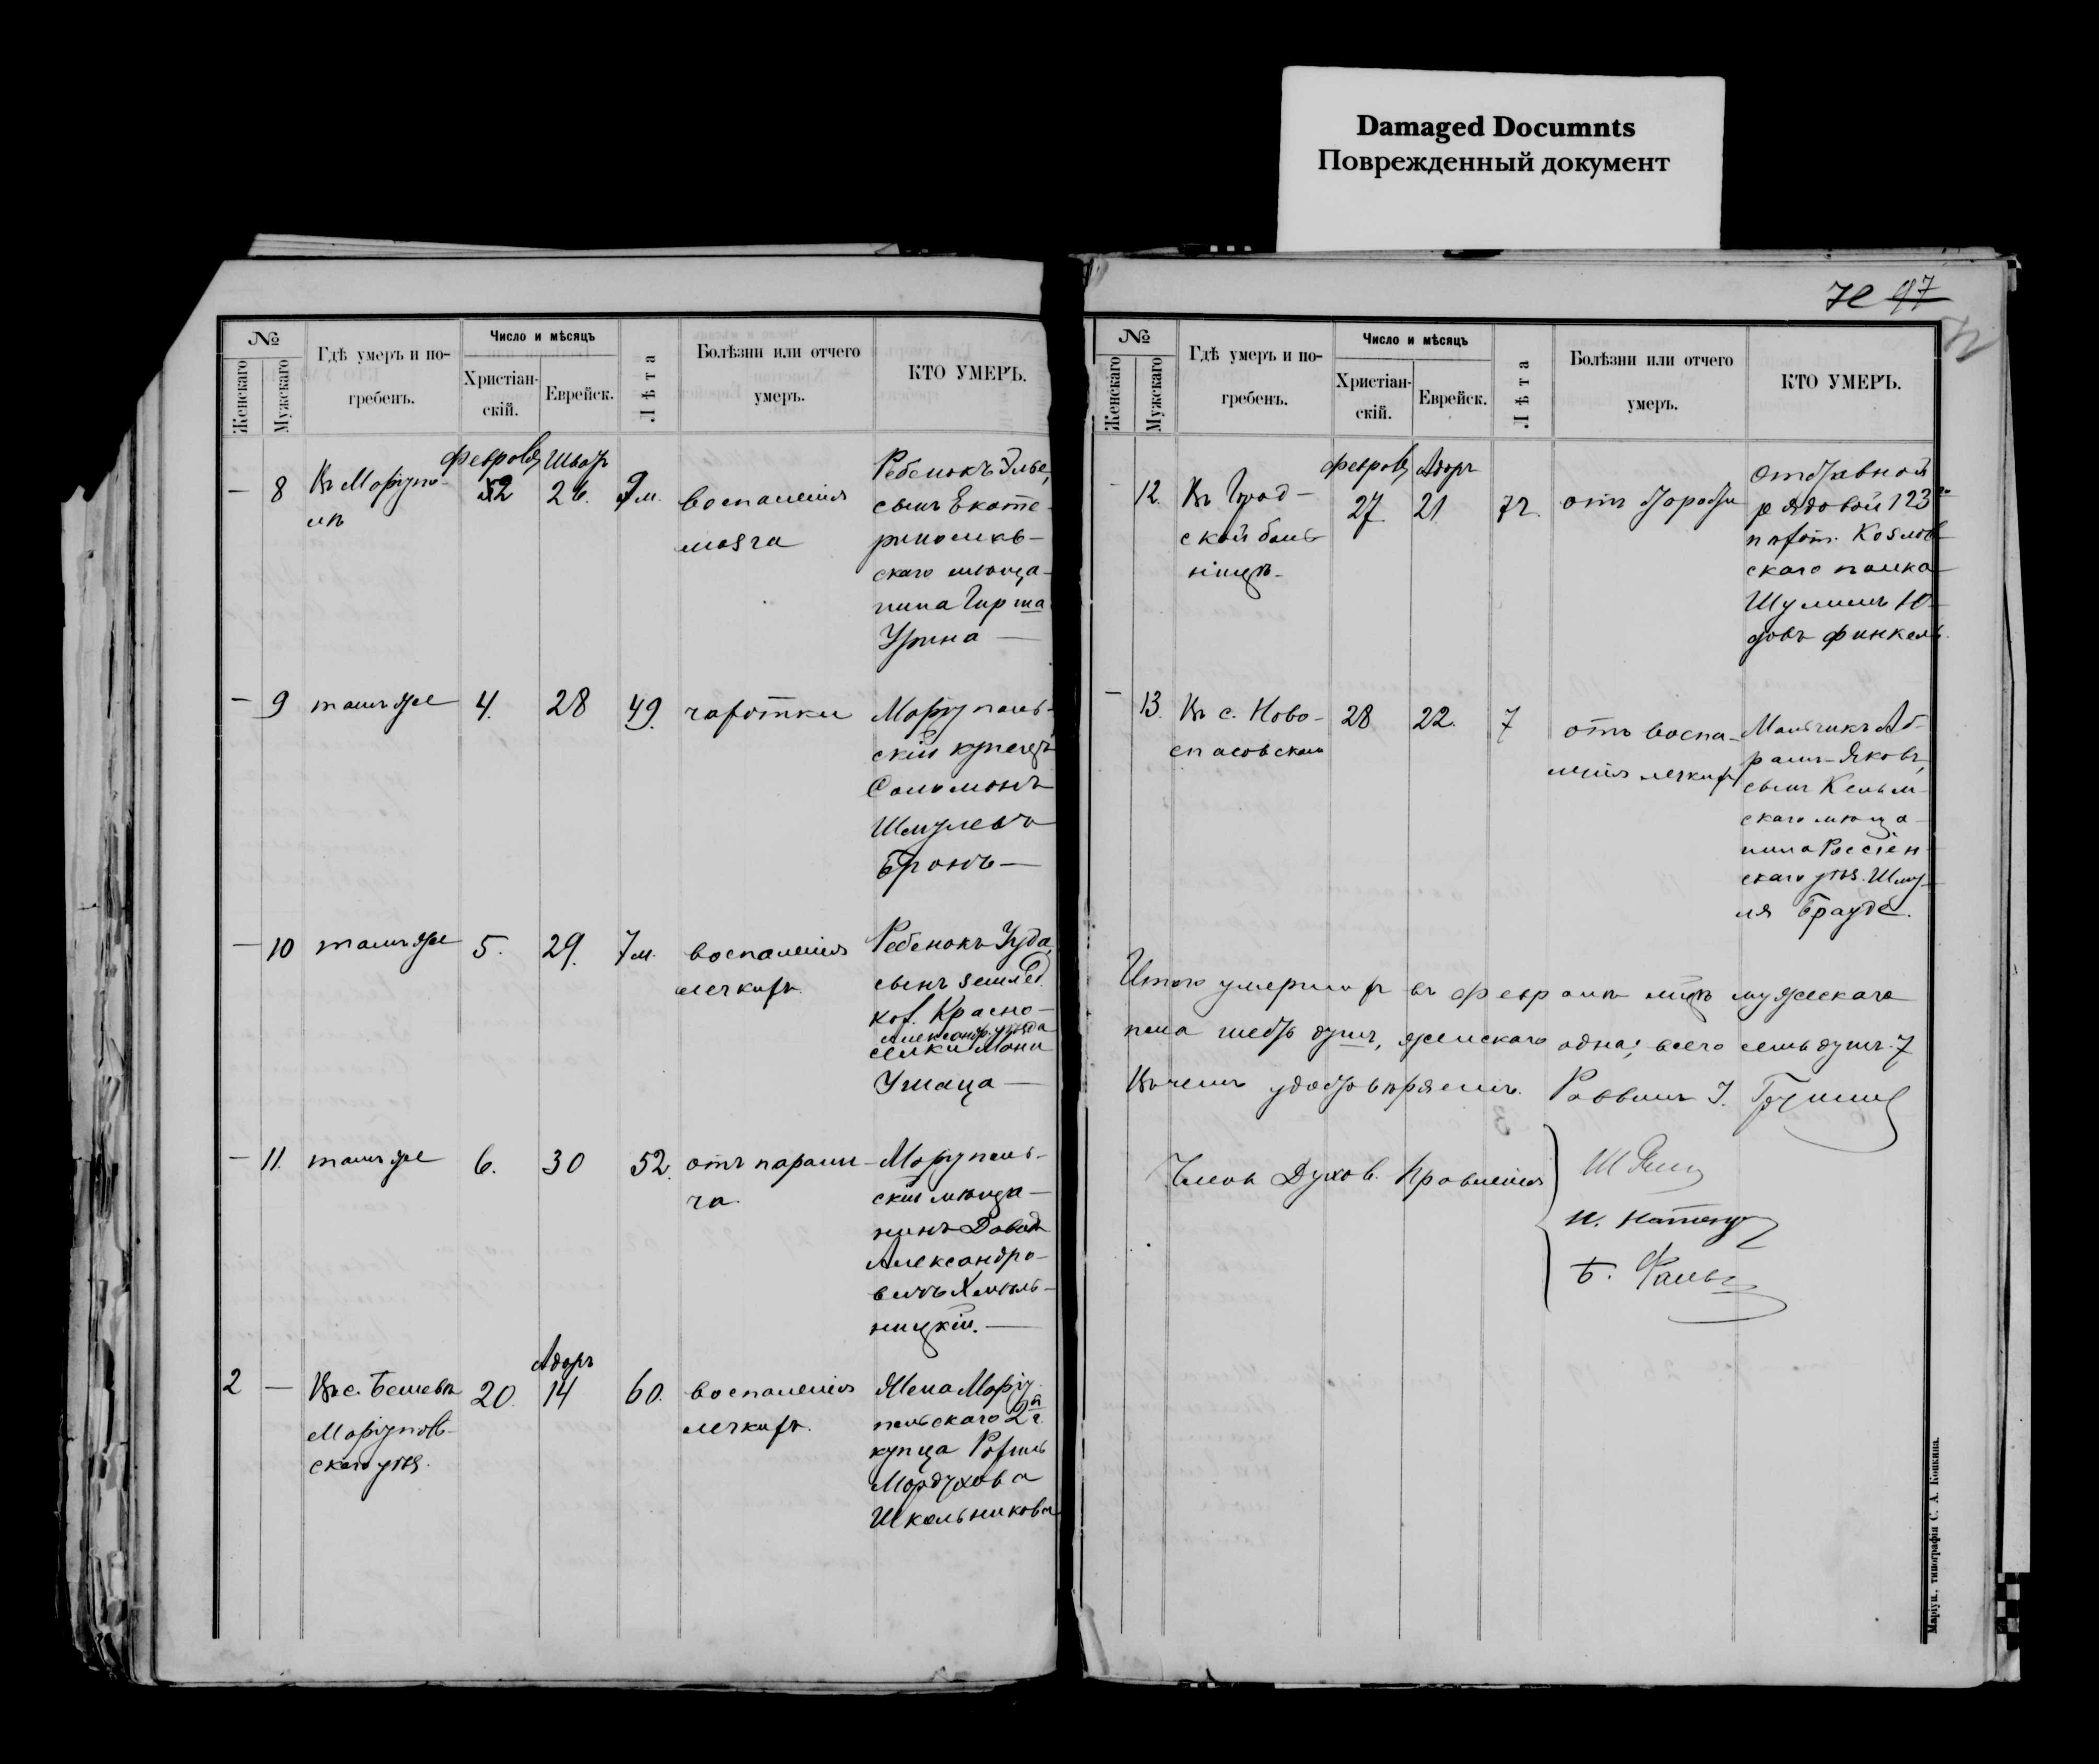 Damaged Documnts
Поврежденный документ
№
Женскаго
Мужскаго
Гдѣ умеръ и по-
гребенъ.
Число и мѣсяцъ
Христіан-
скій.
Еврейск.
Лѣта
Болѣзни или отчего
умеръ.
КТО УМЕРЪ.
— 8
Въ Маріупо-
лѣ
2
26.
9 м.
воспаленія
мозга
Ребенокъ
сынъ Екате-
ринослав-
скаго мѣща-
нина Гирша
Урина —
— 9
тамъ же
4.
28
49.
чахотки
Маріуполь-
скій купецъ
Соломонъ
Шмулевъ
Бронъ —
— 10
тамъ же
5.
29.
7 м.
воспаленія
легкихъ.
Ребенокъ Іуда,
сынъ землед.
кол. Красно-
Александр. уѣзда
селки
— 11.
тамъ же
6.
30
52.
отъ парали-
ча.
Маріуполь-
скій мѣща-
нинъ Давидъ
Александро-
вичъ Хмѣль-
ницкій. —
2 —
Въ с. Бешевѣ
Маріуполь-
скаго уѣз.
20.
Адаръ
14
60.
воспаленія
легкихъ.
Жена Маріу-
польскаго 2й г.
купца Рохиль
Мордухова
Школьникова
97
№
Женскаго
Мужскаго
Гдѣ умеръ и по-
гребенъ.
Число и мѣсяцъ
Христіан-
скій.
Еврейск.
Лѣта
Болѣзни или отчего
умеръ.
КТО УМЕРЪ.
12.
Въ Град-
ской боль-
ницѣ.
27
Адаръ
21
72.
отъ старости
Отставной
рядовой 123го
пѣхот. Козлов-
скаго полка
Шулимъ Ю-
довъ Финкель.
— 13.
Въ с. Ново-
спасовскомъ
28
22.
7
отъ воспа-
ленія легкихъ
Мальчикъ Аб-
рамъ-Яковъ,
сынъ Кельм-
скаго мѣща-
нина Россіен-
скаго уѣз. Шму-
ля Брауде.
Итого умершихъ въ февралѣ мѣцѣ мужескаго
пола шесть душъ, женскаго одна; всего семь душъ 7
Въ чемъ удостовѣряемъ. Раввинъ І.
Члены Духов. Правленія
Маріуп., типографія С. А. Копкина.